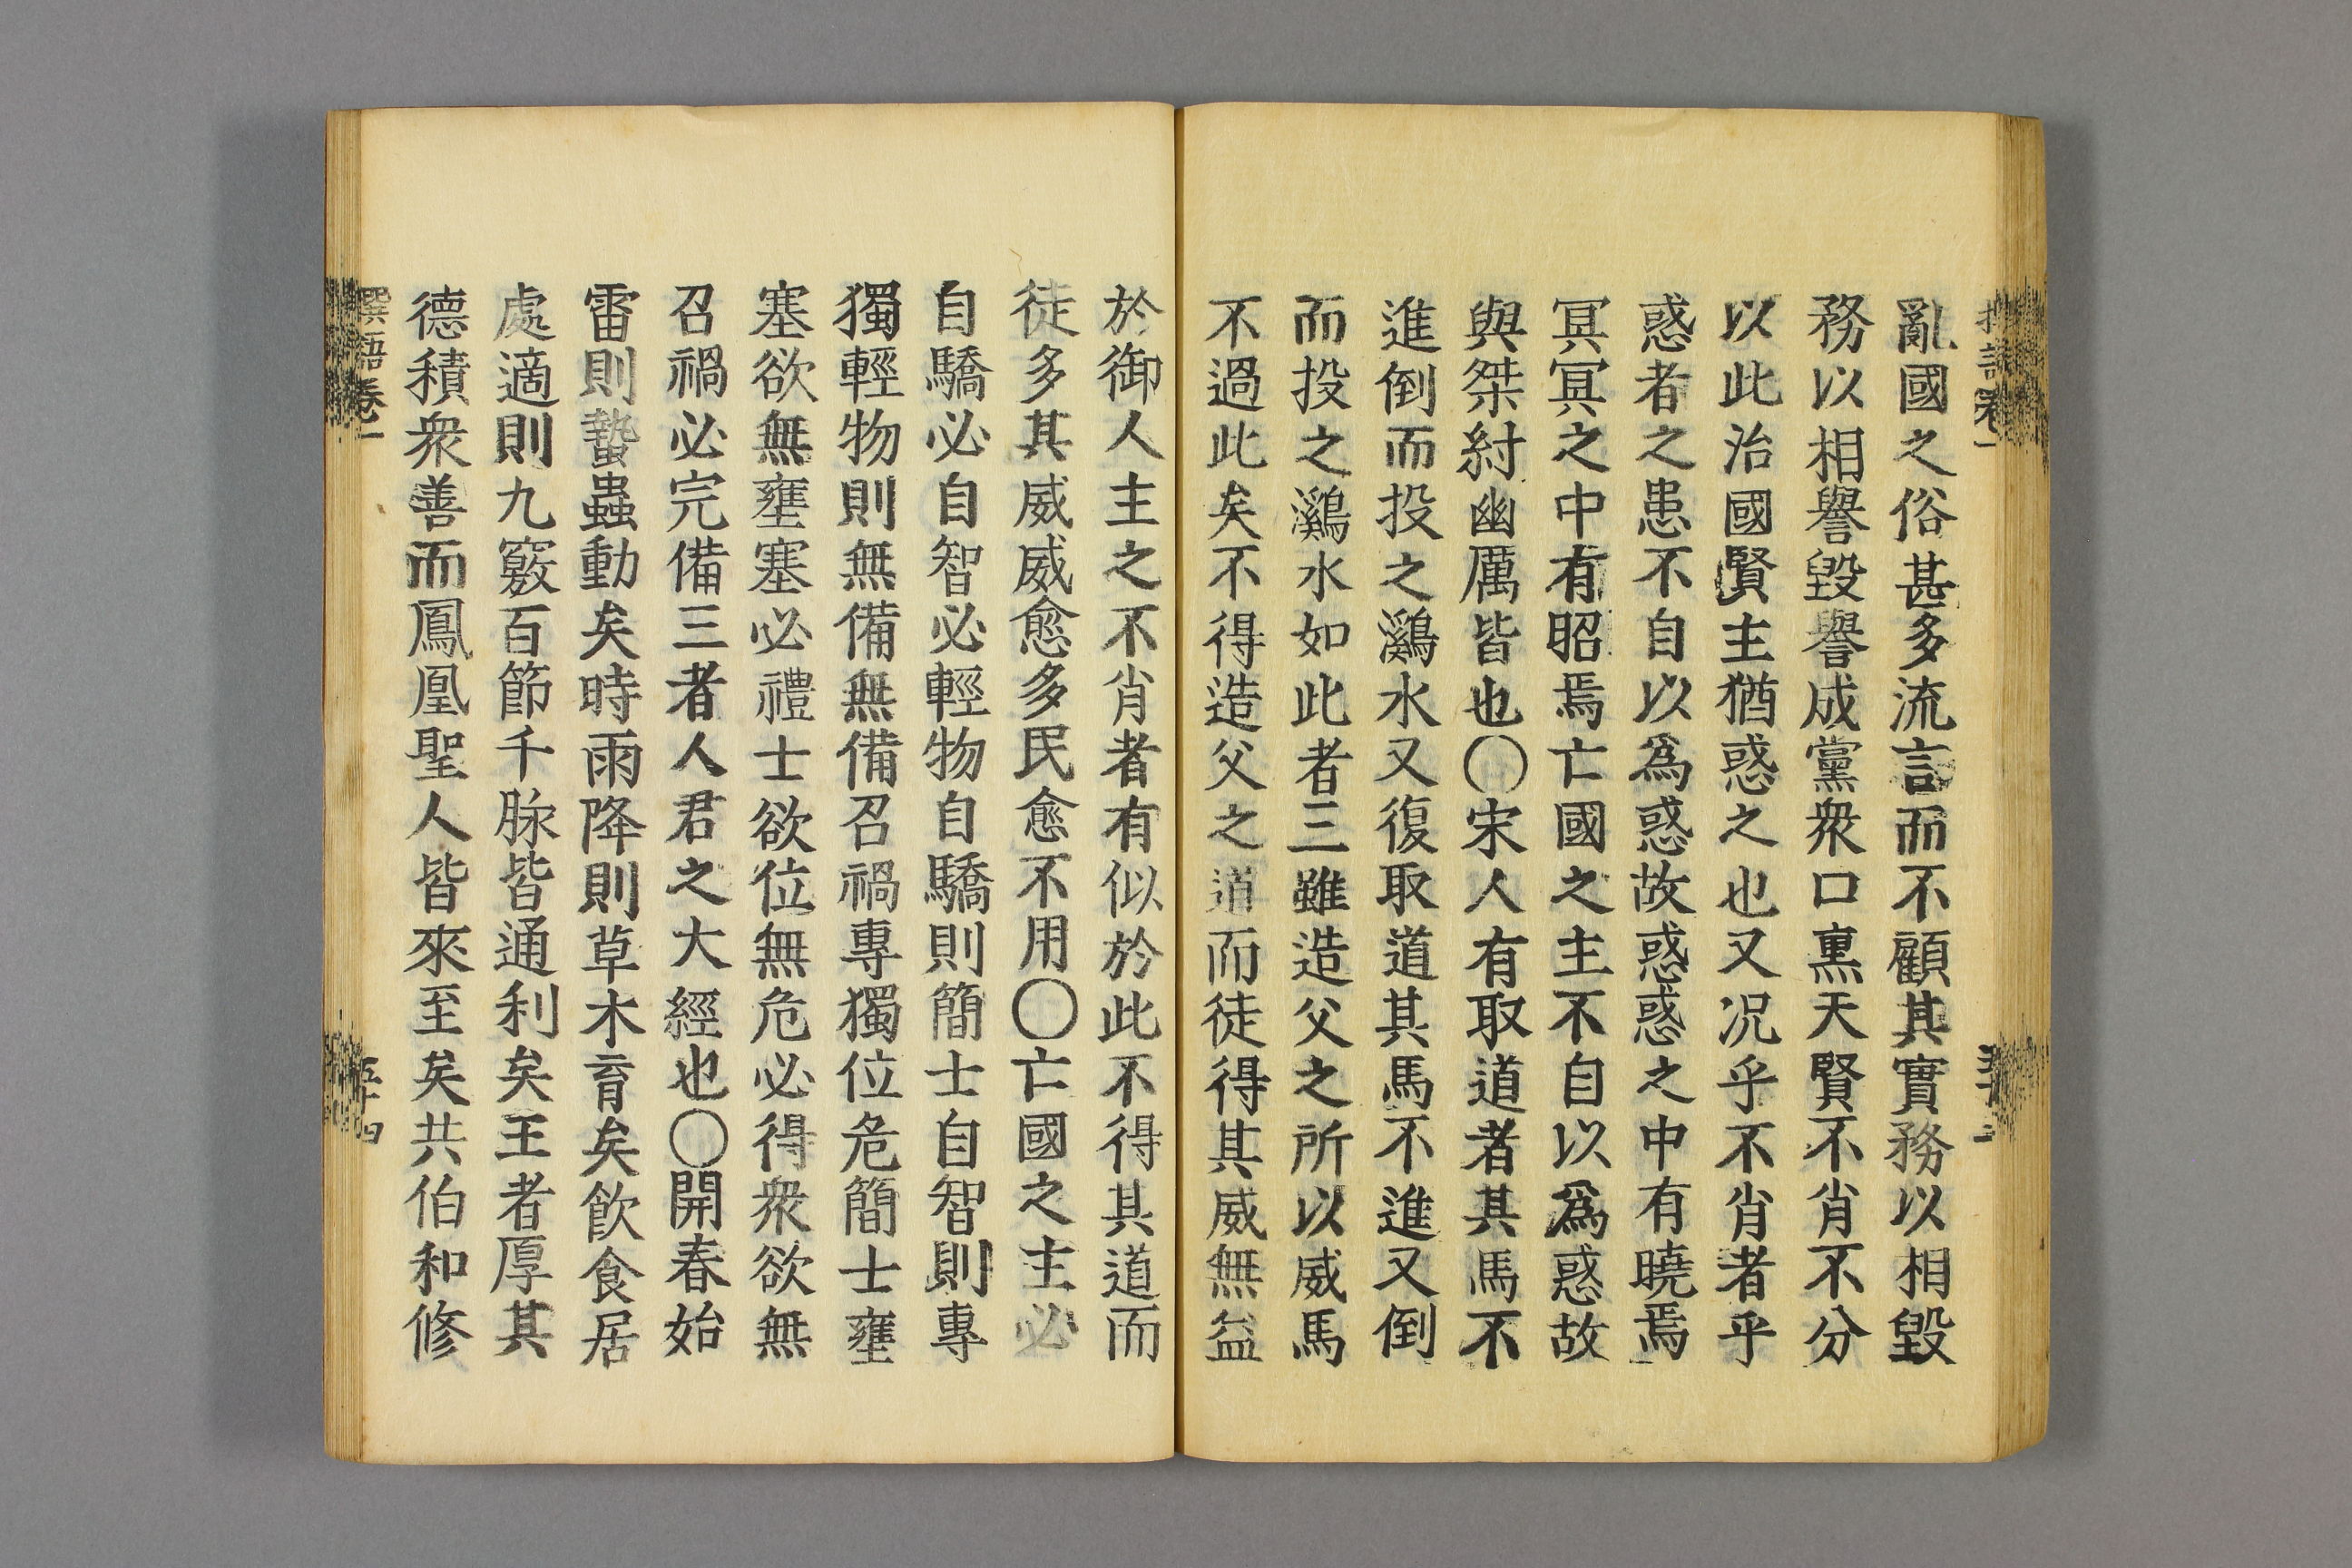 亂國之俗甚多流言而不顧其實務以相毀
務以相譽毀譽成黨衆口熏天賢不肖不分
以此治國賢主猶惑之也又况乎不肖者乎
惑者之患不自以爲惑故惑惑之中有曉焉
冥冥之中有昭焉亡國之主不自以爲惑故
與桀紂幽厲皆也〇宋人有取道者其馬不
進倒而投之鸂水又復取道其馬不進又倒
而投之鸂水如此者三雖造父之所以威馬
不過此矣不得造父之道而徒得其威無益
於御人主之不肖者有似於此不得其道而
徒多其威威愈多民愈不用〇亡國之主必
自驕必自智必輕物自驕則簡士自智則專
獨輕物則無備無備召禍專獨位危簡士壅
塞欲無壅塞必禮士欲位無危必得衆欲無
召禍必完備三者人君之大經也〇開春始
雷則蟄蟲動矣時雨降則草木育矣飲食居
處適則九竅百節千脉皆通利矣王者厚其
德積衆善而鳳凰聖人皆來至矣共伯和修
撰語卷一
五十四